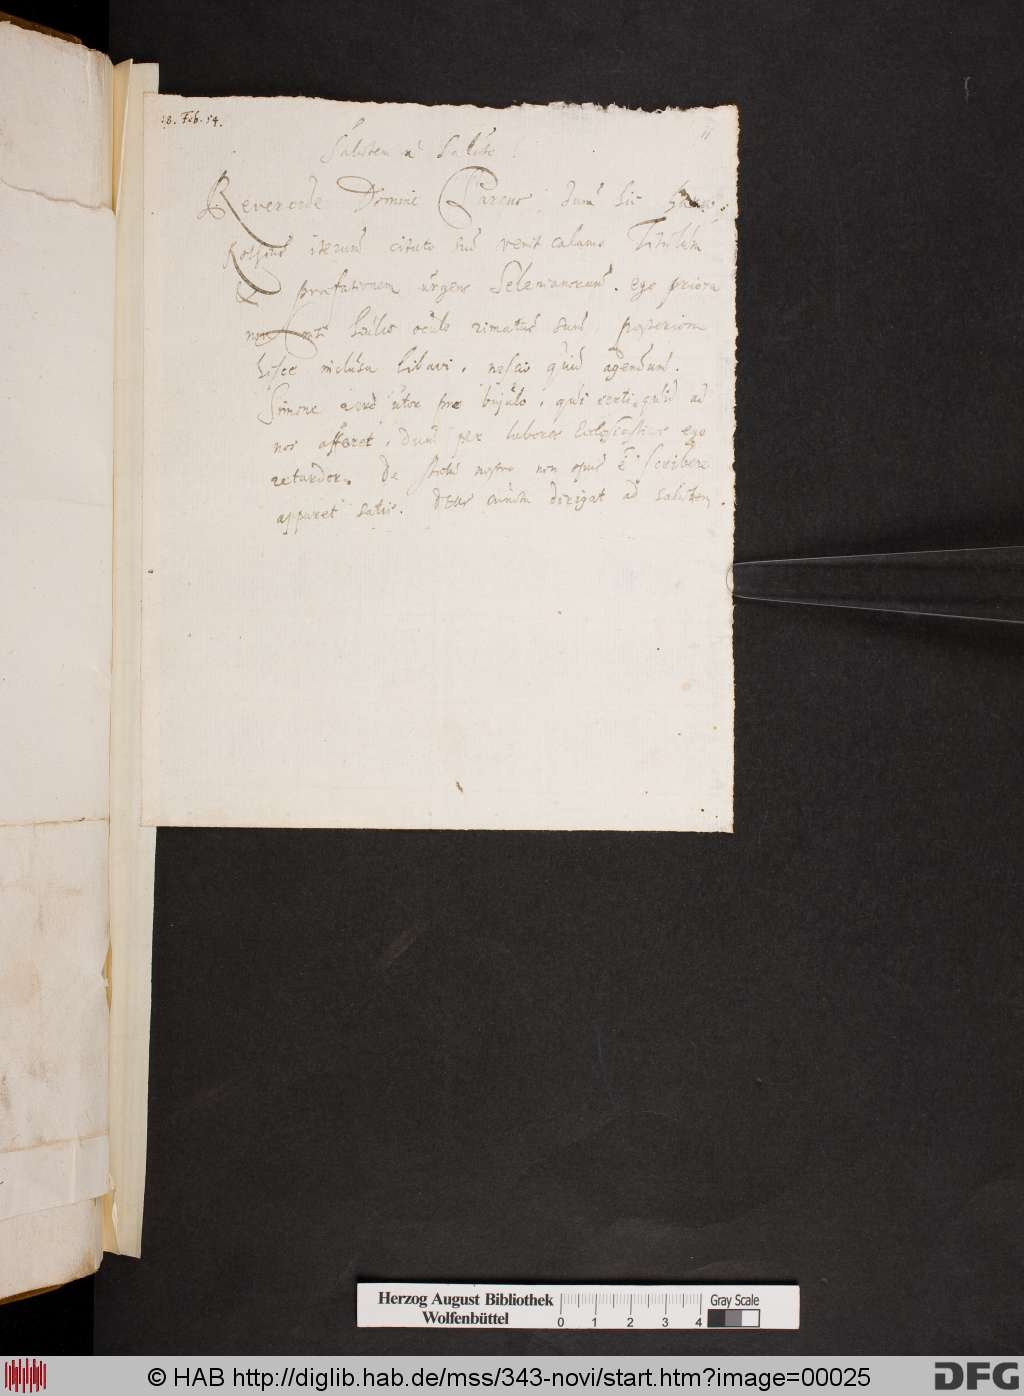 18. Feb. 54.
11
Salutem a Salute!
Reverende Domine Parens, dum sic
iterum citato suo venit calamo Titulum
& præfationem urgens Selenianorum. ego priora
non oculo rimatus sum, posteriora
hisce inclusa libavi, nescio quid agendum.
Simone vero utor pro bajulo, qui certi quid ad
nos afferet, dum per labores Ecclesiasticos ego
retardor. De statu nostro non opus e scribere
apparet satis. DEus cuncta dirigat ad salutem.
Herzog August Bibliothek
Wolfenbüttel
0 1 2 3 4
Gray Scale
© HAB http://diglib.hab.de/mss/343-novi/start.htm?image=00025
DFG